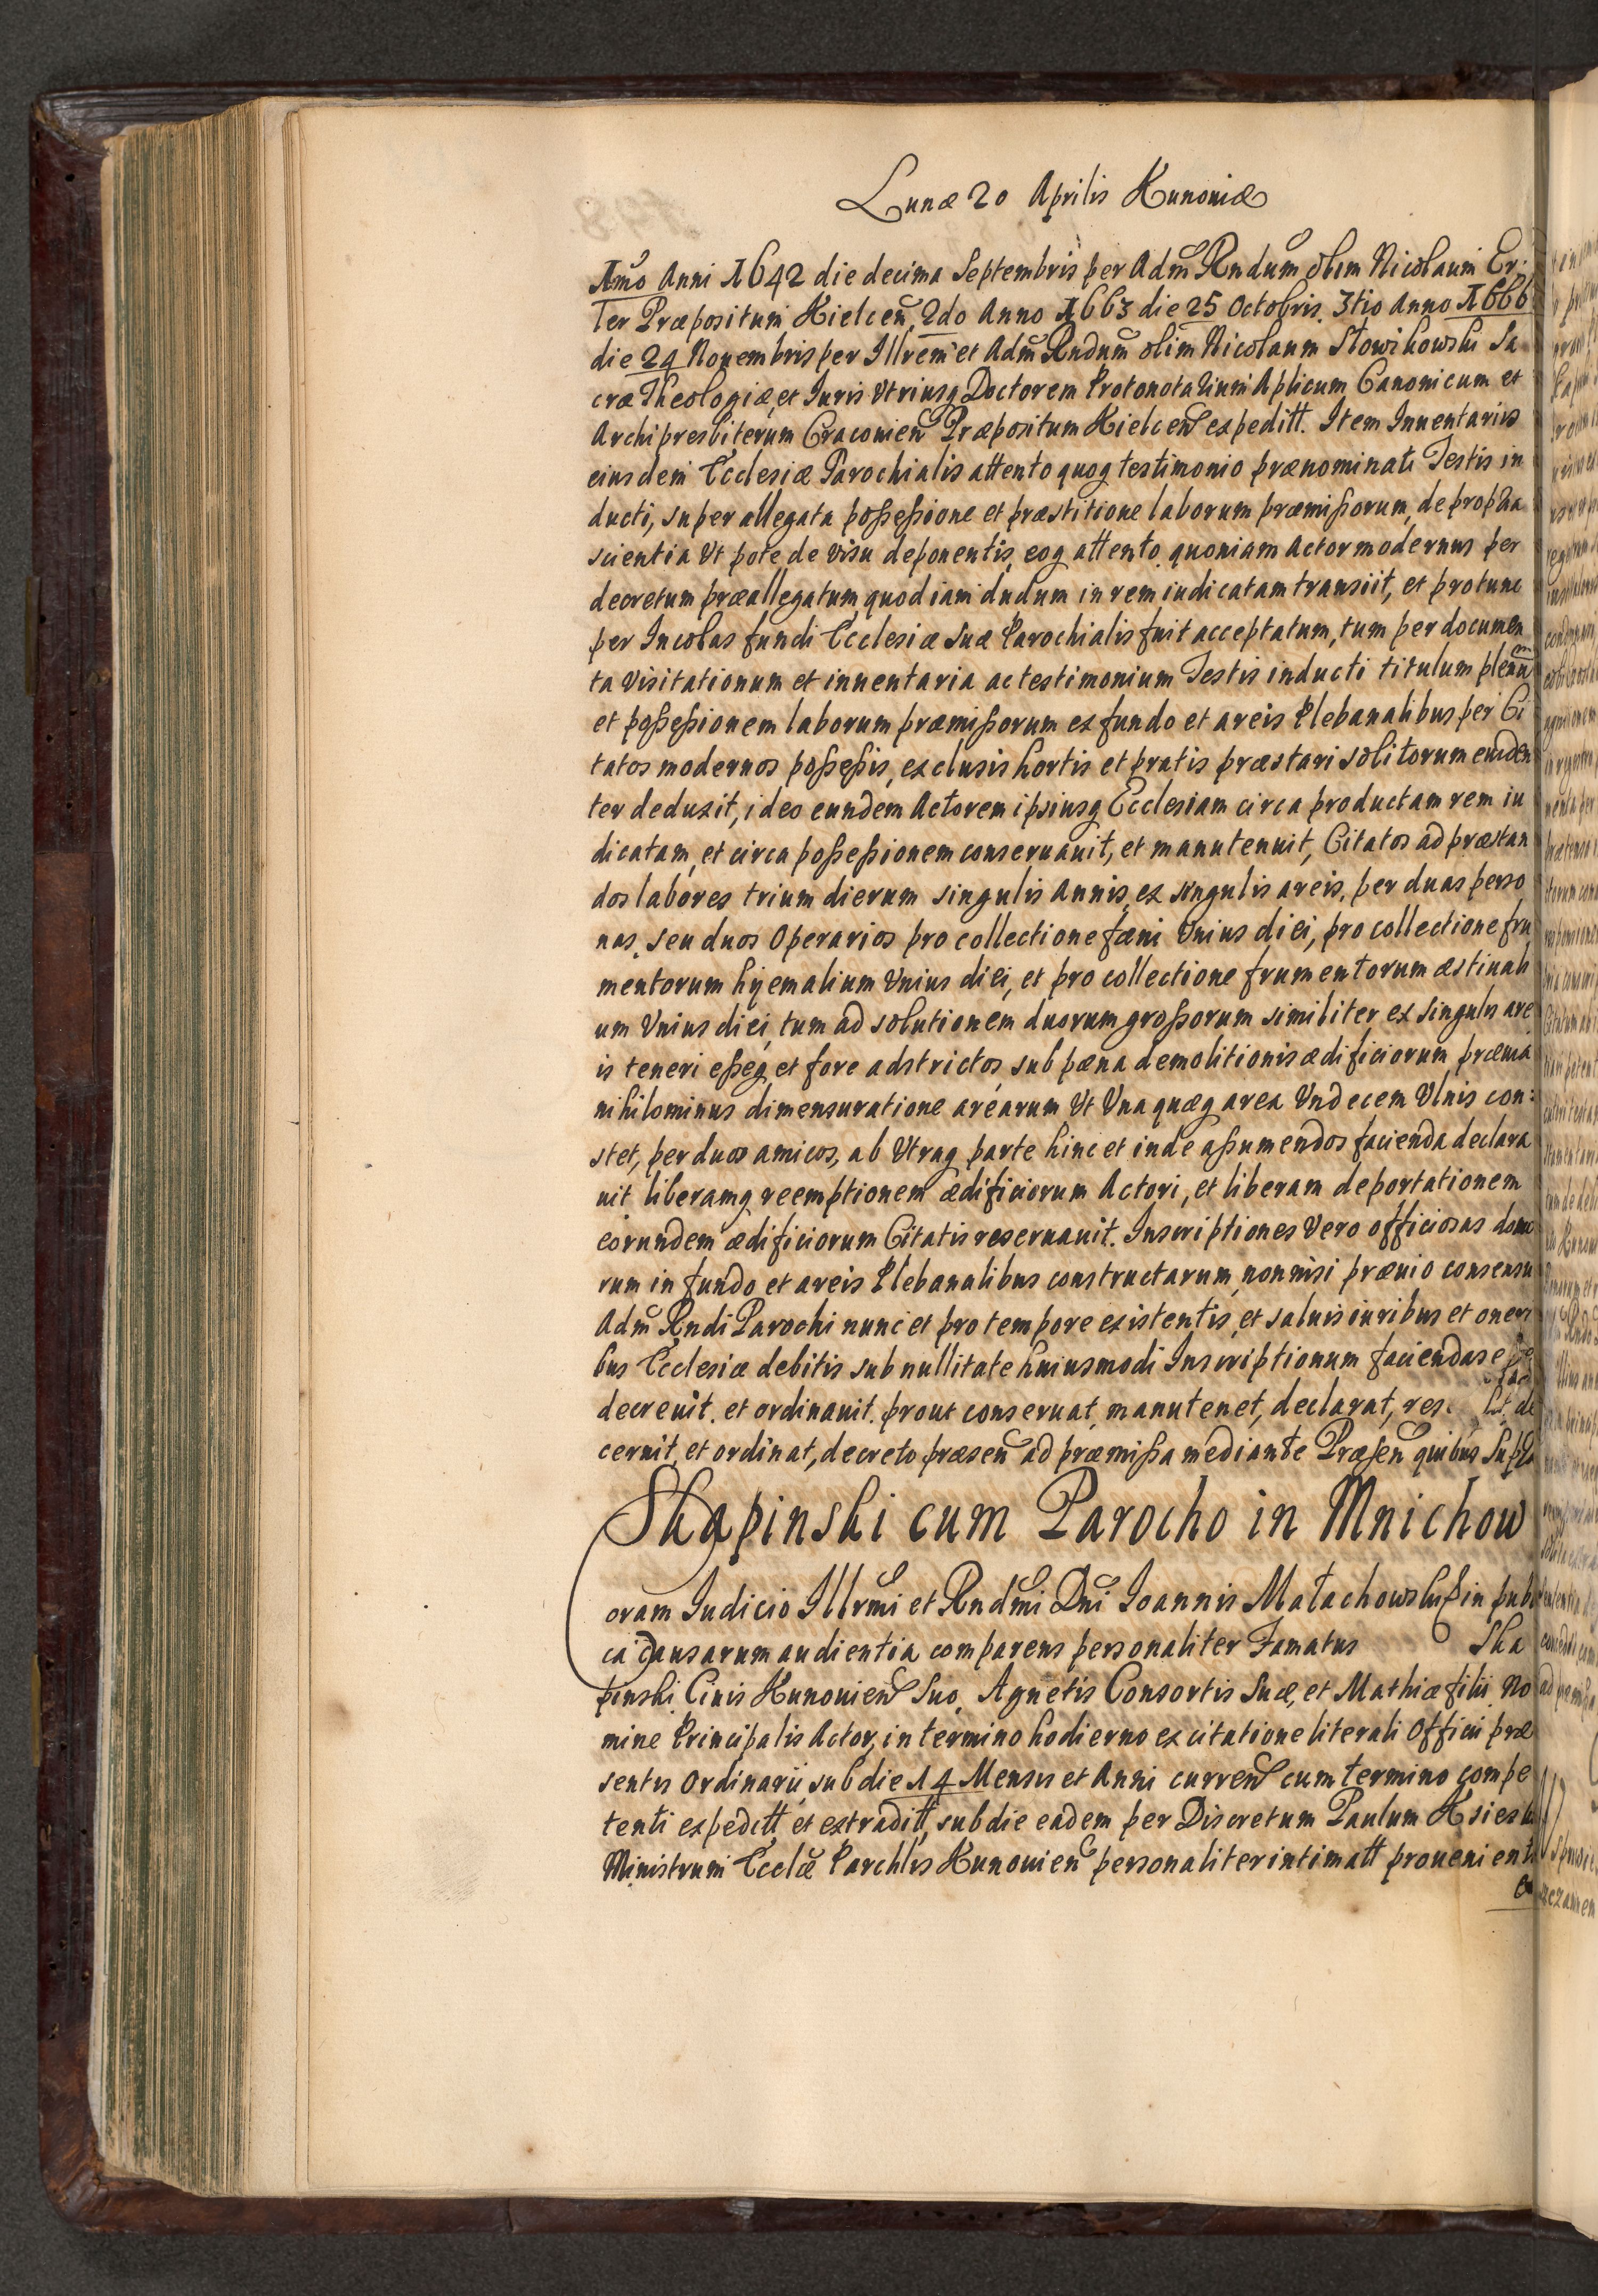 Lunæ 20 Aprilis Kunoviæ
Imo Anni 1642 die decima Septembris per Adm̃ Rndum olim Nicolaum Er:
ler Præpositum Kielceñ, 2do Anno 1663 die 25 Octobris. 3tio Anno 1666
die 24 Nouembris per Illrem et Adm̃ Rndum olim Nicolaum Słowikowski Sa
cræ Theologiæ, et Iuris Vtriusq Doctorem Protonotarium Aplicum Canonicum et
Archipresbiterum Cracouien Præpositum Kielcen expeditt. Item Inuentarius
eiusdem Ecclesiæ Parochialis attento quoq testimonio prænominati Testis in
ducti, super allegata poßeßione et præstitione laborum præmißorum, de propria
scientia Vt pote de visu deponentis, eoq attento quoniam Actor modernus per
decretum præallegatum quod iam dudum in rem iudicatam transiit, et protunc
per Incolas fundi Ecclesiæ suæ Parochialis fuit acceptatum, tum per documen
ta Visitationum et inuentaria ac testimonium Testis inducti titulum plenũ
et poßeßionem laborum præmißorum ex fundo et areis Plebanalibus per Ci
tatos modernos poßeßis, exclusis hortis et pratis præstari solitorum euiden
ter deduxit, ideo eundem Actorem ipsiusq Ecclesiam circa productam rem iu
dicatam, et circa poßeßionem conseruauit, et manutenuit, Citatos ad præstan
dos labores trium dierum singulis Annis, ex singulis areis, per duas perso
nas, seu duos Operarios pro collectione fæni Vnius diei, pro collectione fru
mentorum hyemalium Vnius diei, et pro collectione frumentorum æstiuali
um Vnius diei, tum ad solutionem duorum großorum similiter ex singulis are
is teneri eßeq et fore adstrictos, sub pæna demolitionis ædificiorum præuia
nihilominus dimensuratione arearum Vt Vna quæq area Vndecem Vlnis con:
stet, per duos amicos, ab Vtraq parte hinc et inde aßumendos facienda declara
uit liberamq reemptionem ædificiorum Actori, et liberam deportationem
eorundem ædificiorum Citatis reseruauit. Inscriptiones Vero officiosas domo
rum in fundo et areis Plebanalibus constructarum, nonnisi præuio consensu
Adm̃ Rndi Parochi nunc et pro tempore existentis, et saluis iuribus et oneri
bus Ecclesiæ debitis sub nullitate huiusmodi Inscriptionum faciendas eße
decreuit. et ordinauit. prout conseruat, manutenet, declarat, de
cernit, et ordinat, decreto præsen ad præmißa mediante Præsen quibus
Skapinski cum Parocho in Mnichow
Coram Iudicio Illrmi et Rndmi Dni Ioannis Małachowski in pub
ca Causarum audientia comparens personaliter Famatus Ska
pinski Ciuis Kunouien Suo, Agnetis Consortis Suæ, et Mathiæ filii No
mine Principalis Actor, in termino hodierno ex citatione literali Officii præ
sentis Ordinarii sub die 14 Mensis et Anni curren cum termino compe
tenti expeditt et extraditt, sub die eadem per Discretum Paulum
Ministrum Ecclæ Parchlis Kunouien personaliter intimatt prouenient